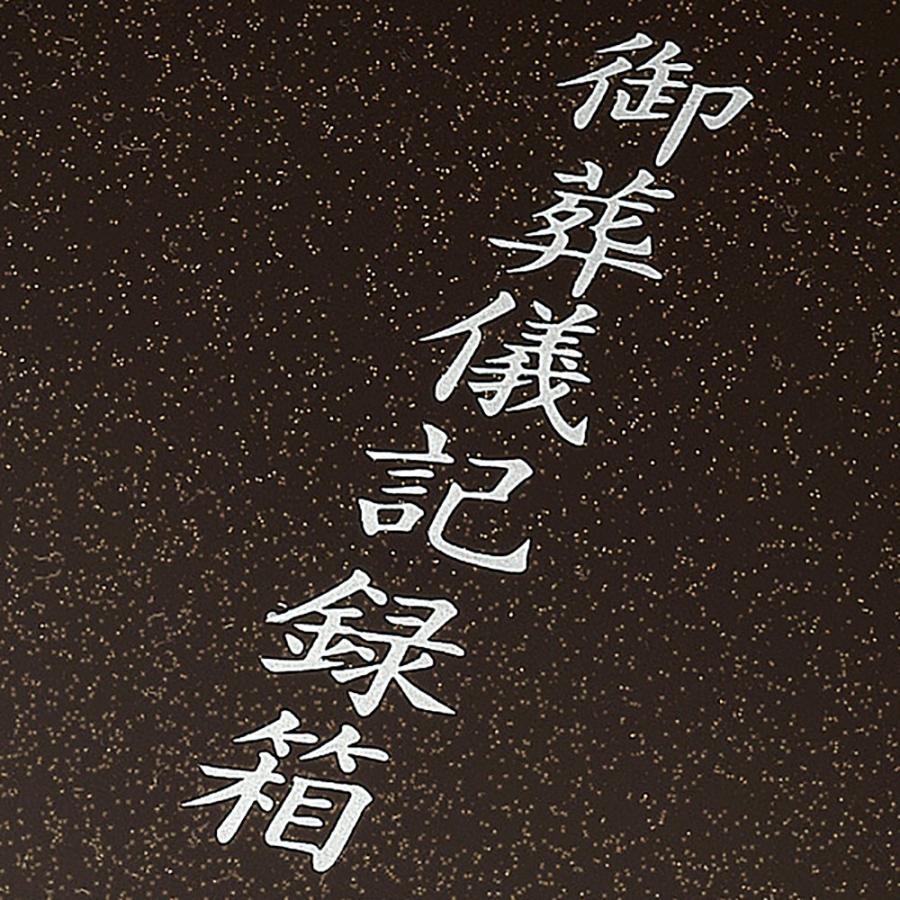 御葬儀記録箱